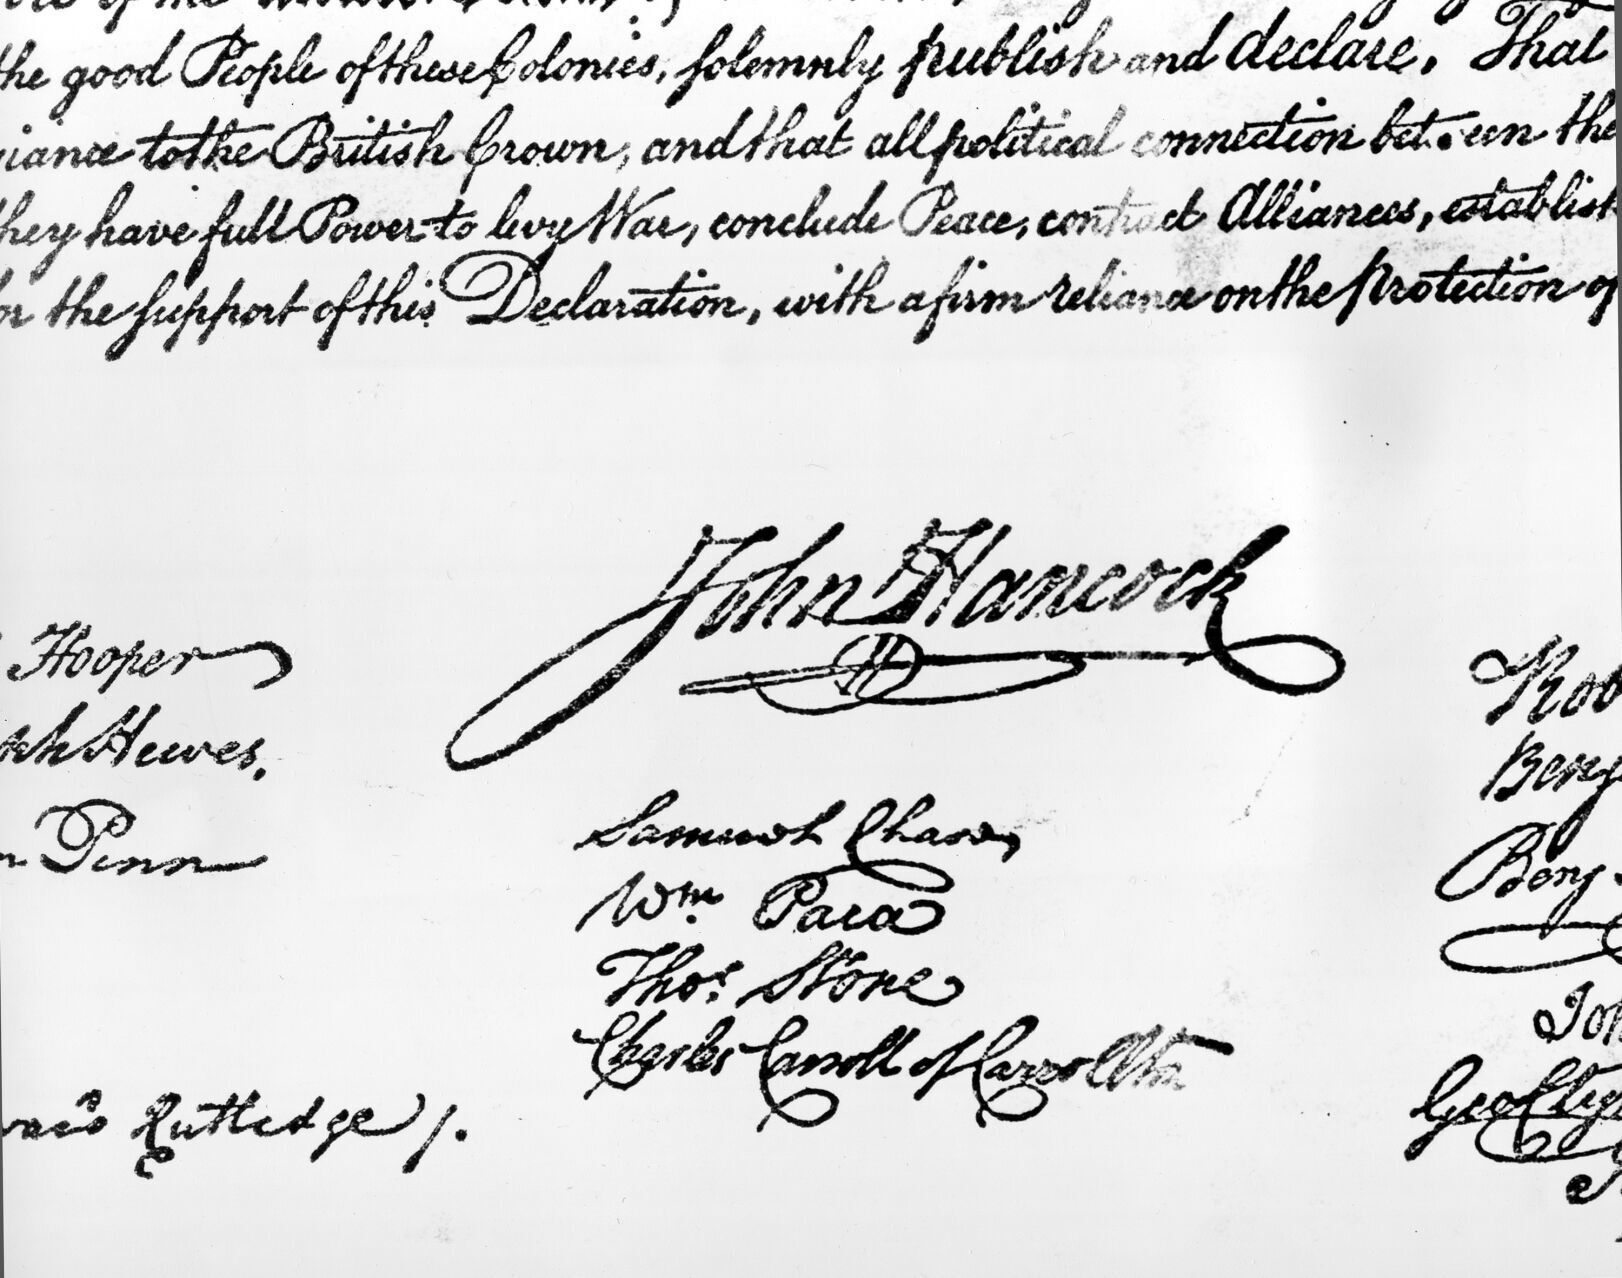 the good People of these Colonies, solemnly publish and declare, That
to the British Crown, and that all political connection between the
they have full Power to levy War, conclude Peace, contract Alliances, establish
for the support of this Declaration, with a firm reliance on the protection of
John Hancock
Hooper
Hewes,
Penn
Rutledge /.
Samuel Chase
Wm. Paca
Thos. Stone
Charles Carroll of Carrollton
Rob
Benj
Benj
Joh
Geo